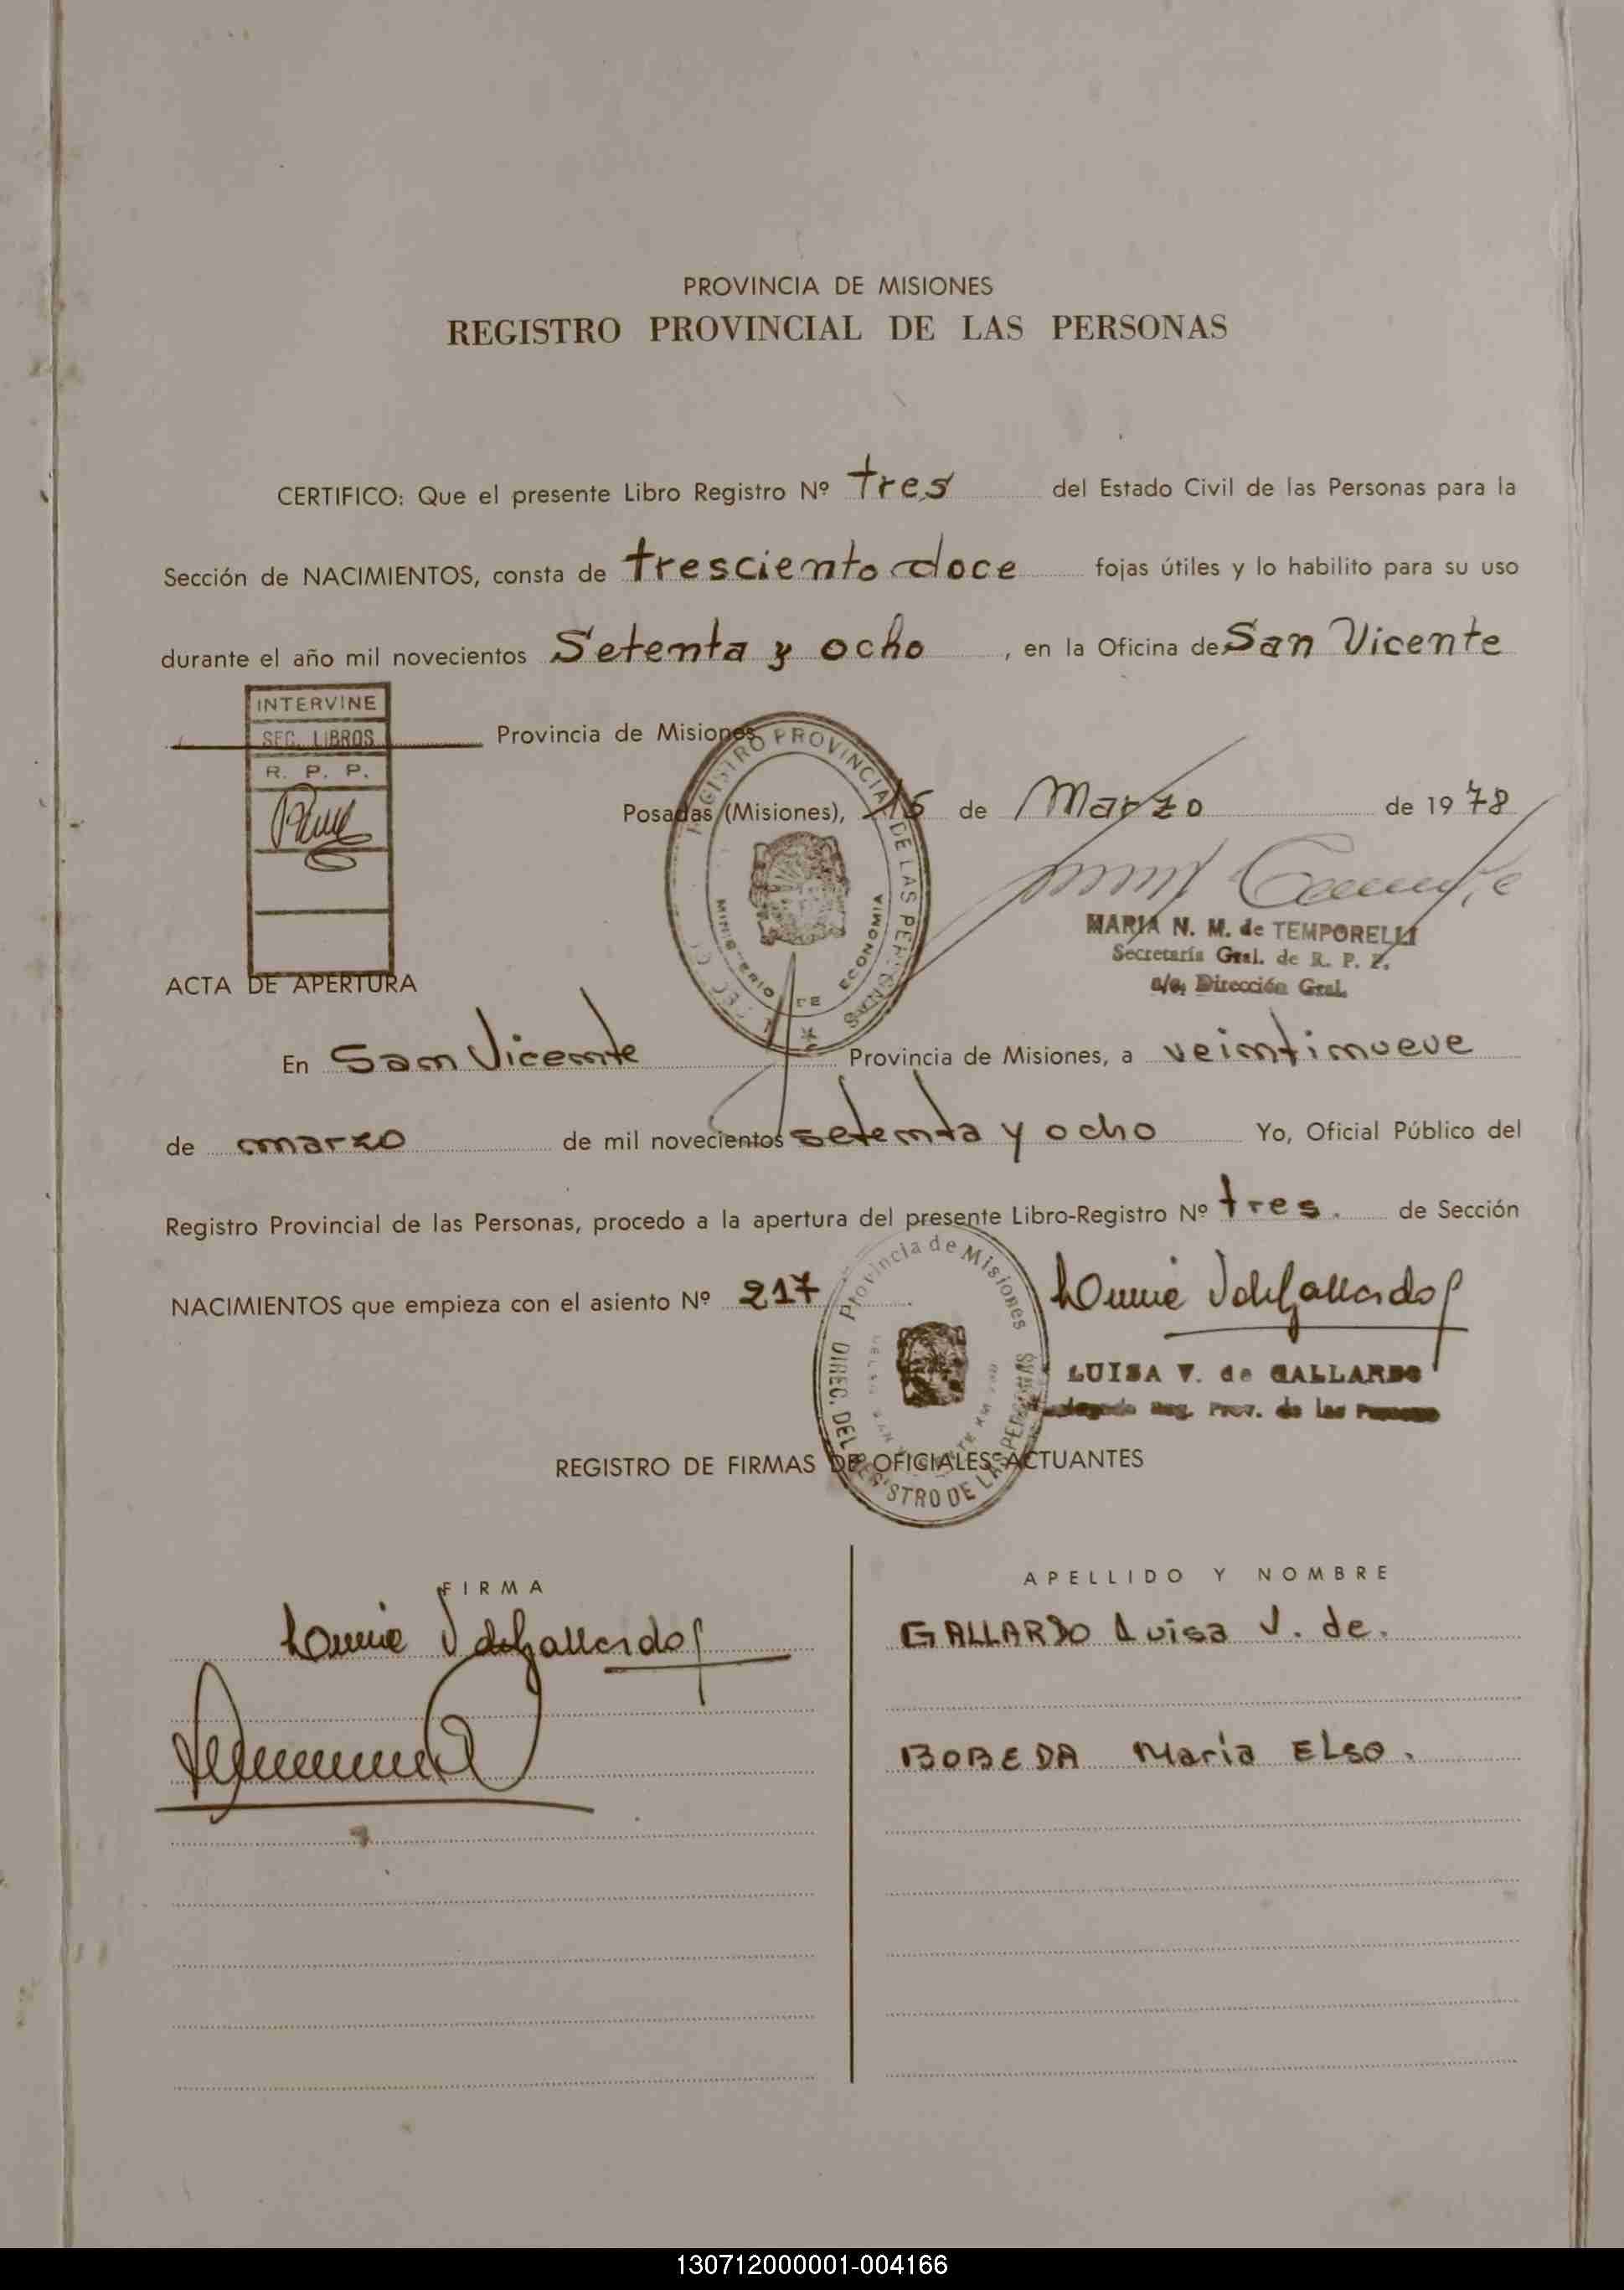 PROVINCIA DE MISIONES
REGISTRO PROVINCIAL DE LAS PERSONAS
CERTIFICO: Que el presente Libro Registro Nº tres del Estado Civil de las Personas para la
Sección de NACIMIENTOS, consta de tresciento doce fojas útiles y lo habilito para su uso
durante el año mil novecientos Setenta y ocho, en la Oficina de San Vicente
Provincia de Misiones
INTERVINE
SEC. LIBROS
R. P. P.
REGISTRO PROVINCIAL DE LAS PERSONAS
MINISTERIO DE ECONOMIA
Posadas (Misiones), 15 de Marzo de 1978
MARIA N. M. de TEMPORELLI
Secretaría Gral. de R. P. P.
a/c. Dirección Gral.
ACTA DE APERTURA
En San Vicente Provincia de Misiones, a veintinueve
de marzo de mil novecientos setenta y ocho Yo, Oficial Público del
Registro Provincial de las Personas, procedo a la apertura del presente Libro-Registro Nº tres. de Sección
NACIMIENTOS que empieza con el asiento Nº 217
Provincia de Misiones
DIREC. DEL REGISTRO DE LAS PERSONAS
LUISA V. de GALLARDO
Reg. Prov. de las Personas
REGISTRO DE FIRMAS DE OFICIALES ACTUANTES
FIRMA
APELLIDO Y NOMBRE
GALLARDO Luisa V. de.
BOBEDA Maria Elso.
130712000001-004166